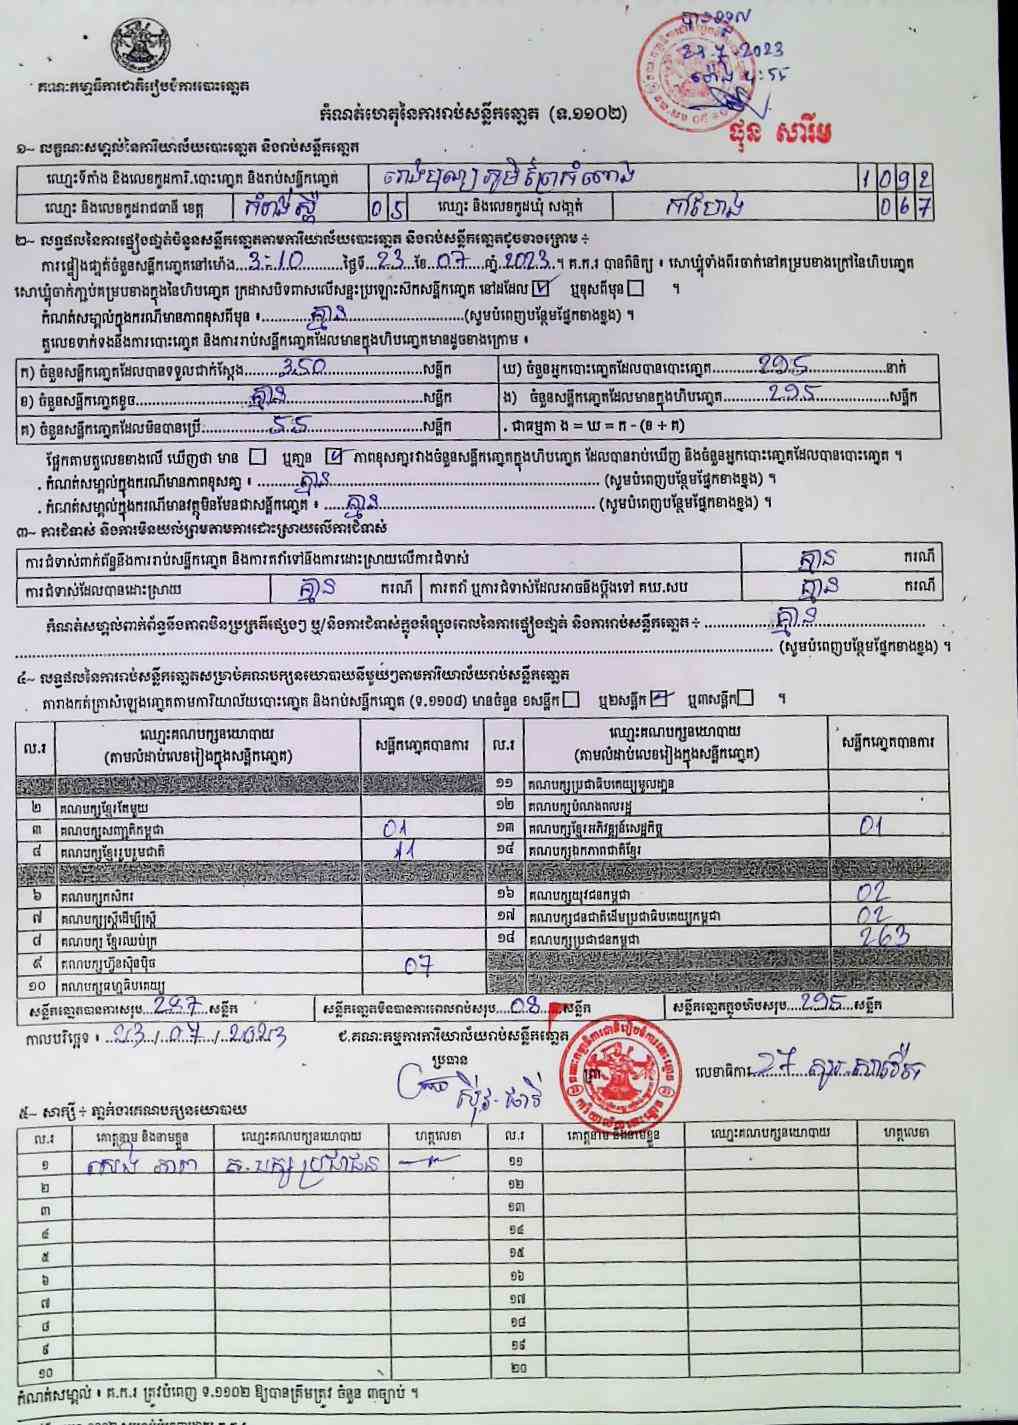 បានទទួល
23-7-2023
ម៉ោង ៤:៥៥
គណៈកម្មាធិការជាតិរៀបចំការបោះឆ្នោត
កំណត់ហេតុនៃការរាប់សន្លឹកឆ្នោត (ទ.១១០២)
ផុន សារឹម
១~ លក្ខណៈសម្គាល់នៃការិយាល័យបោះឆ្នោត និងរាប់សន្លឹកឆ្នោត
ឈ្មោះទីតាំង និងលេខកូដការិ.បោះឆ្នោត និងរាប់សន្លឹកឆ្នោត 1092
ឈ្មោះ និងលេខកូដរាជធានី ខេត្ត កំពង់ស្ពឺ 05 ឈ្មោះ និងលេខកូដឃុំ សង្កាត់ 067
២~ លទ្ធផលនៃការផ្ទៀងផ្ទាត់ចំនួនសន្លឹកឆ្នោតតាមការិយាល័យបោះឆ្នោត និងរាប់សន្លឹកឆ្នោតដូចខាងក្រោម ÷
ការផ្ទៀងផ្ទាត់ចំនួនសន្លឹកឆ្នោតនៅម៉ោង 3:10 ថ្ងៃទី 23 ខែ 07 ឆ្នាំ 2023 ។ គ.ក.រ បានពិនិត្យ ៖ សោឃ្លុំទាំងពីរចាក់នៅគម្របខាងក្រៅនៃហិបឆ្នោត
សោឃ្លុំចាក់ភ្ជាប់គម្របខាងក្នុងនៃហិបឆ្នោត ក្រដាសបិទពាសលើសន្ទះប្រឡោះសឹកសន្លឹកឆ្នោត នៅដដែល ☑ ឬខុសពីមុន ☐ ។
កំណត់សម្គាល់ក្នុងករណីមានភាពខុសពីមុន ៖ គ្មាន (សូមបំពេញបន្ថែមផ្នែកខាងខ្នង) ។
តួលេខទាក់ទងនឹងការបោះឆ្នោត និងការរាប់សន្លឹកឆ្នោតដែលមានក្នុងហិបឆ្នោតមានដូចខាងក្រោម ៖
ក) ចំនួនសន្លឹកឆ្នោតដែលបានទទួលជាក់ស្តែង 350 សន្លឹក ឃ) ចំនួនអ្នកបោះឆ្នោតដែលបានបោះឆ្នោត 295 នាក់
ខ) ចំនួនសន្លឹកឆ្នោតខូច គ្មាន សន្លឹក ង) ចំនួនសន្លឹកឆ្នោតដែលមានក្នុងហិបឆ្នោត 295 សន្លឹក
គ) ចំនួនសន្លឹកឆ្នោតដែលមិនបានប្រើ 55 សន្លឹក . ជាធម្មតា ង = ឃ = ក - (ខ + គ)
ផ្អែកតាមតួលេខខាងលើ ឃើញថា មាន ☐ ឬគ្មាន ☑ ភាពខុសគ្នារវាងចំនួនសន្លឹកឆ្នោតក្នុងហិបឆ្នោត ដែលបានរាប់ឃើញ និងចំនួនអ្នកបោះឆ្នោតដែលបានបោះឆ្នោត ។
. កំណត់សម្គាល់ក្នុងករណីមានភាពខុសគ្នា ៖ គ្មាន (សូមបំពេញបន្ថែមផ្នែកខាងខ្នង) ។
. កំណត់សម្គាល់ក្នុងករណីមានវត្ថុមិនមែនជាសន្លឹកឆ្នោត ៖ គ្មាន (សូមបំពេញបន្ថែមផ្នែកខាងខ្នង) ។
៣~ ការជំទាស់ និងការមិនយល់ព្រមតាមការដោះស្រាយលើការជំទាស់
ការជំទាស់ពាក់ព័ន្ធនឹងការរាប់សន្លឹកឆ្នោត និងការតវ៉ាទៅនឹងការដោះស្រាយលើការជំទាស់ គ្មាន ករណី
ការជំទាស់ដែលបានដោះស្រាយ គ្មាន ករណី ការតវ៉ា ឬការជំទាស់ដែលអាចនឹងប្តឹងទៅ គឃ.សប គ្មាន ករណី
កំណត់សម្គាល់ពាក់ព័ន្ធនឹងភាពមិនប្រក្រតីផ្សេងៗ ឬ/និងការជំទាស់ក្នុងអំឡុងពេលនៃការផ្ទៀងផ្ទាត់ និងការរាប់សន្លឹកឆ្នោត ÷ គ្មាន
(សូមបំពេញបន្ថែមផ្នែកខាងខ្នង) ។
៤~ លទ្ធផលនៃការរាប់សន្លឹកឆ្នោតសម្រាប់គណបក្សនយោបាយនីមួយៗតាមការិយាល័យរាប់សន្លឹកឆ្នោត
តារាងកត់ត្រាសំឡេងឆ្នោតតាមការិយាល័យបោះឆ្នោត និងរាប់សន្លឹកឆ្នោត (ទ.១១០៨) មានចំនួន ១សន្លឹក ☐ ឬ២សន្លឹក ☑ ឬ៣សន្លឹក ☐ ។
ល.រ ឈ្មោះគណបក្សនយោបាយ (តាមលំដាប់លេខរៀងក្នុងសន្លឹកឆ្នោត) សន្លឹកឆ្នោតបានការ ល.រ ឈ្មោះគណបក្សនយោបាយ (តាមលំដាប់លេខរៀងក្នុងសន្លឹកឆ្នោត) សន្លឹកឆ្នោតបានការ
១១ គណបក្សប្រជាធិបតេយ្យមូលដ្ឋាន
២ គណបក្សខ្មែរតែមួយ ១២ គណបក្សបំណងពលរដ្ឋ
៣ គណបក្សសញ្ជាតិកម្ពុជា 01 ១៣ គណបក្សខ្មែរអភិវឌ្ឍន៍សេដ្ឋកិច្ច 01
៤ គណបក្សខ្មែររួបរួមជាតិ 11 ១៤ គណបក្សឯកភាពជាតិខ្មែរ
៦ គណបក្សកសិករ ១៦ គណបក្សយុវជនកម្ពុជា 02
៧ គណបក្សស្ត្រីដើម្បីស្ត្រី ១៧ គណបក្សជនជាតិដើមប្រជាធិបតេយ្យកម្ពុជា 02
៨ គណបក្ស ខ្មែរឈប់ក្រ ១៨ គណបក្សប្រជាជនកម្ពុជា 263
៩ គណបក្សហ្វ៊ុនស៊ិនប៉ិច 07
១០ គណបក្សធម្មាធិបតេយ្យ
សន្លឹកឆ្នោតបានការសរុប 287 សន្លឹក សន្លឹកឆ្នោតមិនបានការពេលរាប់សរុប 08 សន្លឹក សន្លឹកឆ្នោតក្នុងហិបសរុប 295 សន្លឹក
កាលបរិច្ឆេទ ៖ 23/07/2023 ជ.គណៈកម្មការការិយាល័យរាប់សន្លឹកឆ្នោត
ប្រធាន ត្រា លេខាធិការ
៥~ សាក្សី ÷ ភ្នាក់ងារគណបក្សនយោបាយ
ល.រ គោត្តនាម និងនាមខ្លួន ឈ្មោះគណបក្សនយោបាយ ហត្ថលេខា ល.រ គោត្តនាម និងនាមខ្លួន ឈ្មោះគណបក្សនយោបាយ ហត្ថលេខា
១ គ.បក្ស ប្រជាជន ១១
២ ១២
៣ ១៣
៤ ១៤
៥ ១៥
៦ ១៦
៧ ១៧
៨ ១៨
៩ ១៩
១០ ២០
កំណត់សម្គាល់ ៖ គ.ក.រ ត្រូវបំពេញ ទ.១១០២ ឱ្យបានត្រឹមត្រូវ ចំនួន ៣ច្បាប់ ។